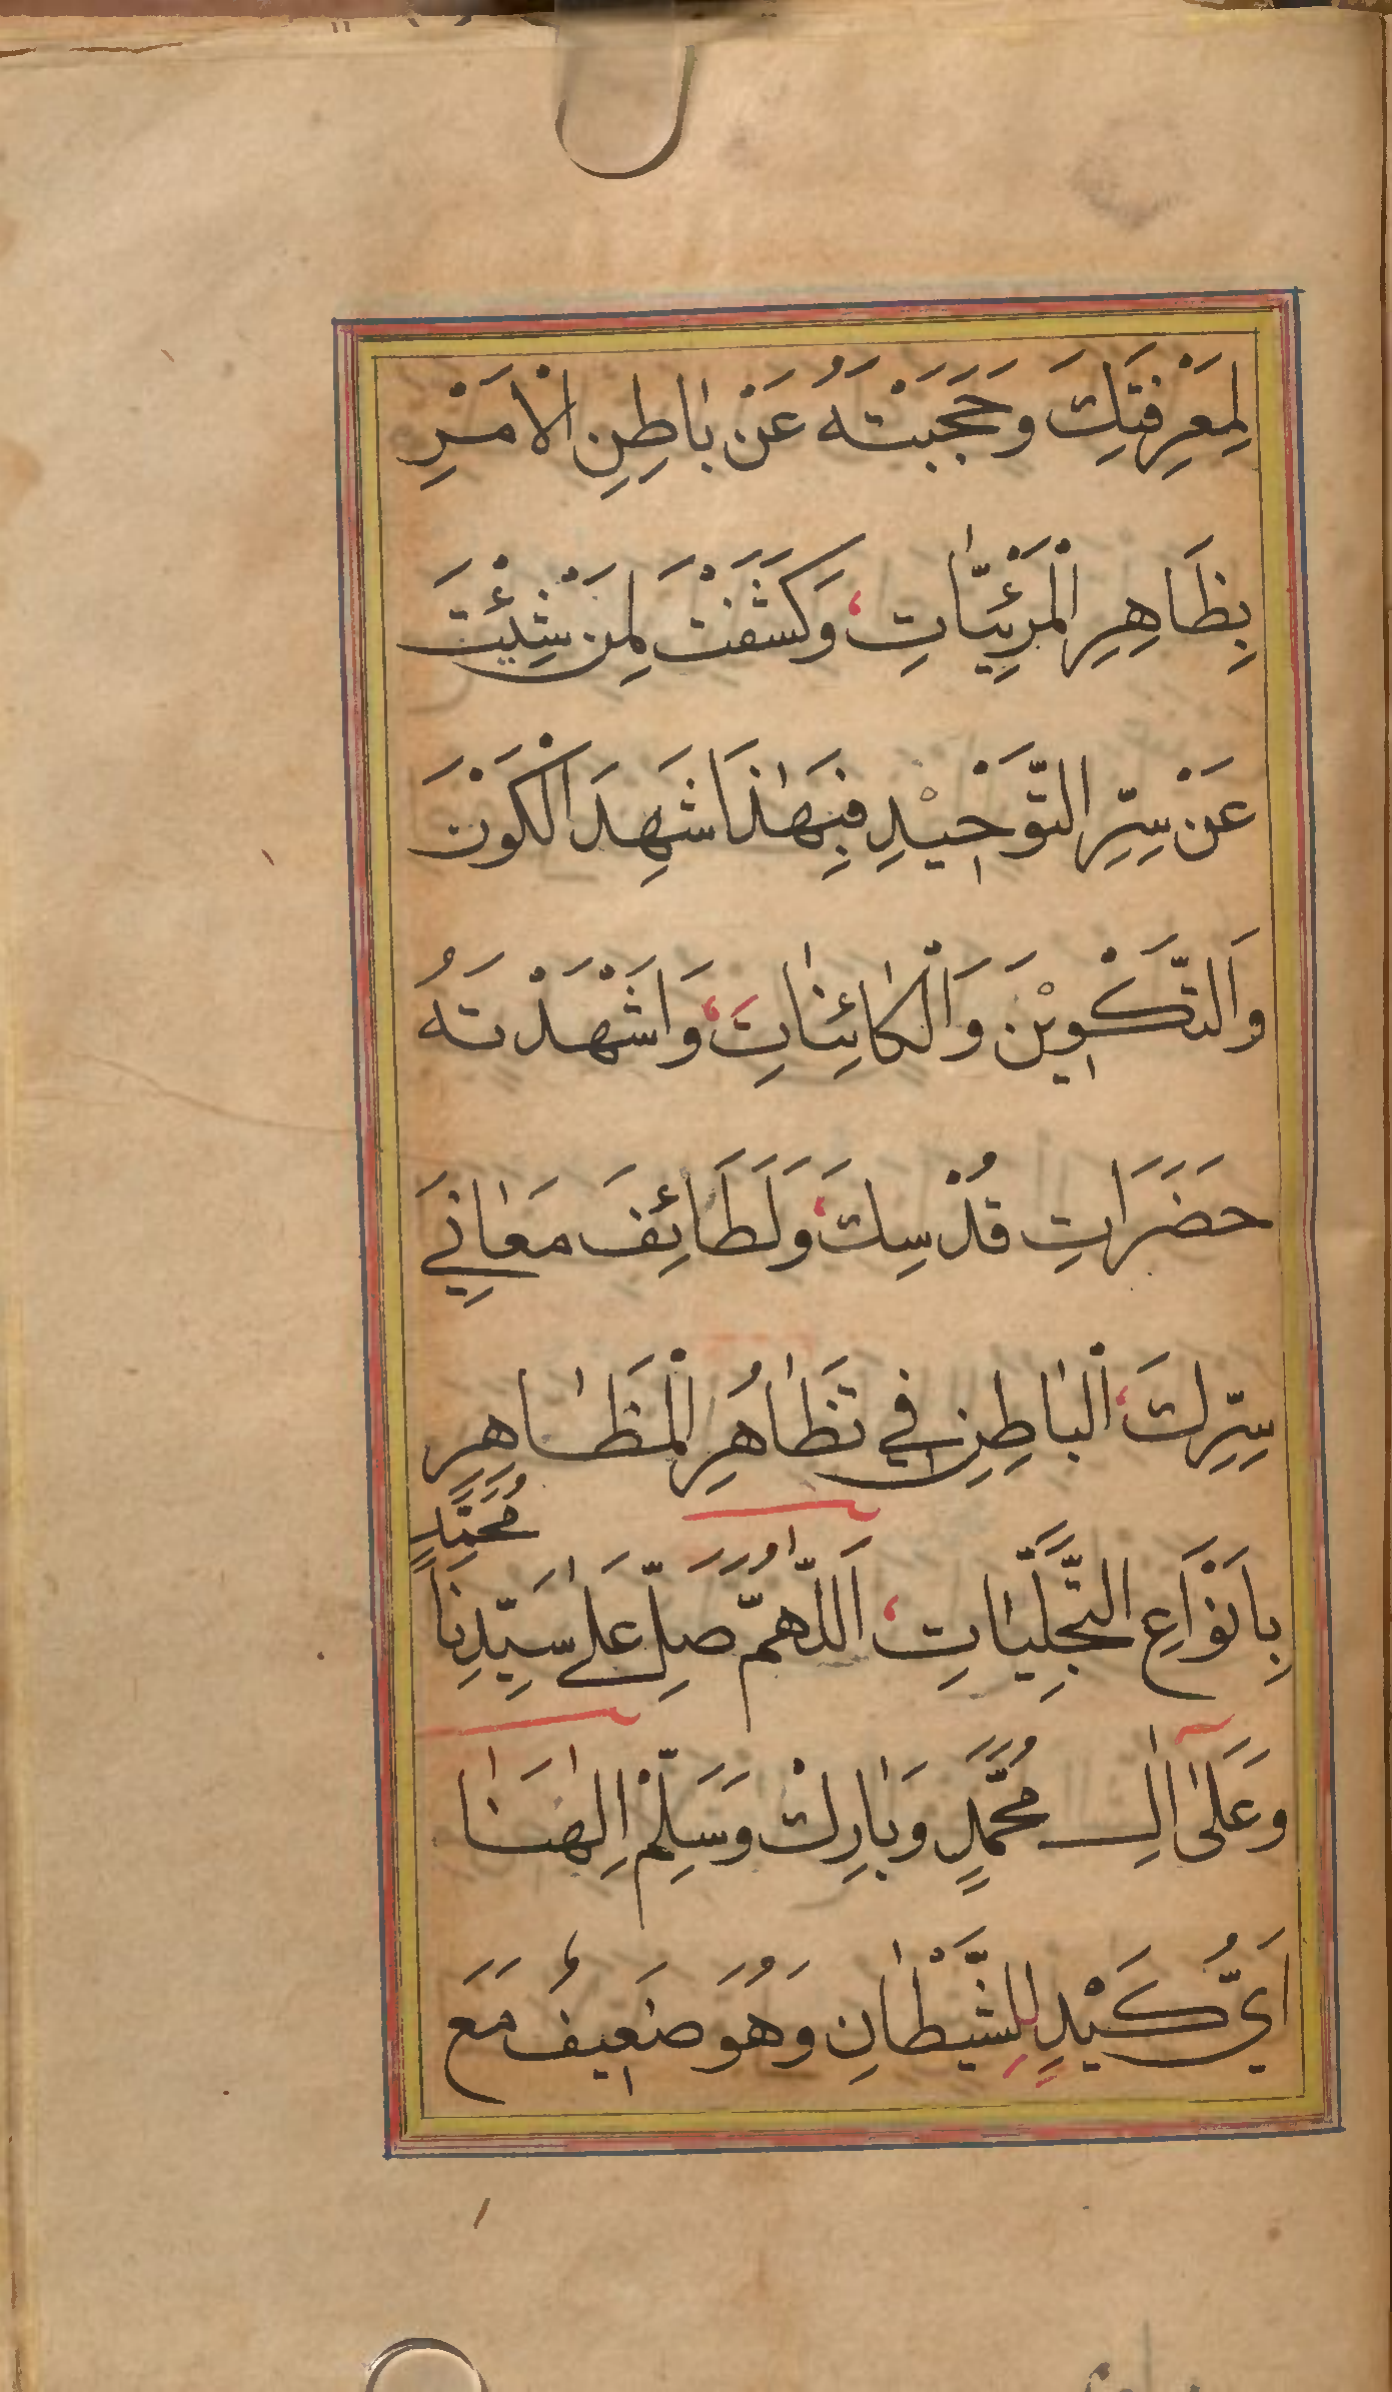 لِمَعْرِفَتِكَ وَحَجَبْتَهُ عَنْ بَاطِنِ الْاَمْرِ
بِظَاهِرِ الْمَرْئِيَّاتِ، وَكَشَفْتَ لِمَنْ شِئْتَ
عَنْ سِرِّ التَّوْحِيْدِ فَبِهٰذَا شَهِدَ الْكَوْنَ
وَالتَّكْوِيْنَ وَالْكَائِنَاتِ، وَاَشْهَدْتَهُ
حَضَرَاتِ قُدْسِكَ، وَلَطَائِفَ مَعَانِي
سِرِّكَ، الْبَاطِنِ فِي تَظَاهُرِ الْمَظَاهِرِ
مُحَمَّدٍ
بِاَنْوَاعِ التَّجَلِّيَاتِ، اَللّٰهُمَّ صَلِّ عَلٰى سَيِّدِنَا
وَعَلٰى اٰلِ مُحَمَّدٍ وَبَارِكْ وَسَلِّمْ اِلٰهَنَا
اَيُّ كَيْدٍ لِلشَّيْطَانِ وَهُوَ ضَعِيفٌ مَعَ